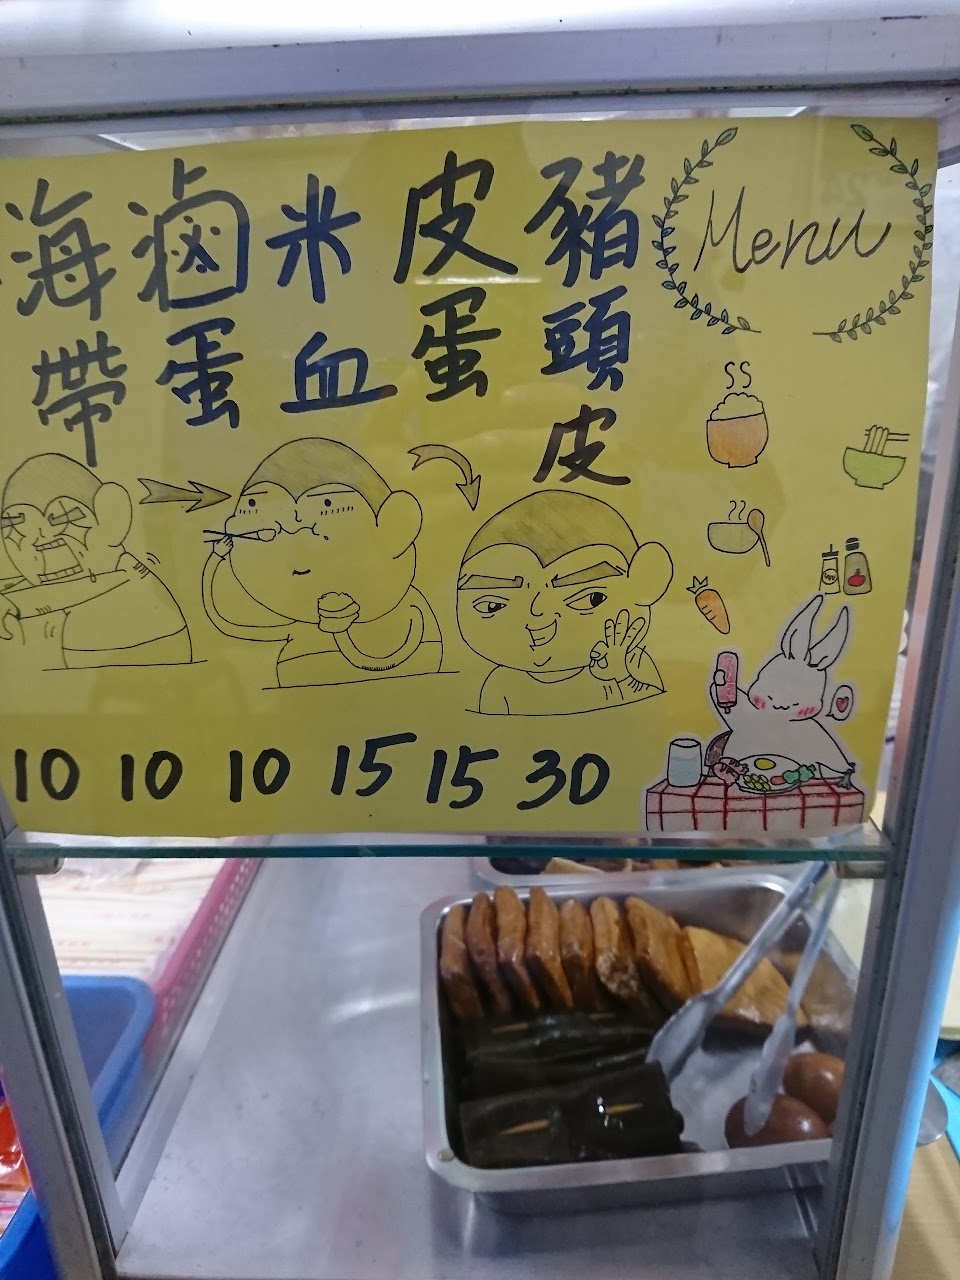 Menu
豬頭皮
皮蛋
米血
滷蛋
海帶
10 10 10 15 15 30